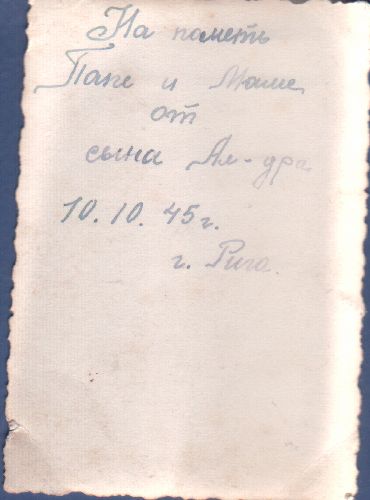 На паметь
Папе и Маме
от
сына Ал-дра
10.10.45г.
г. Рига.